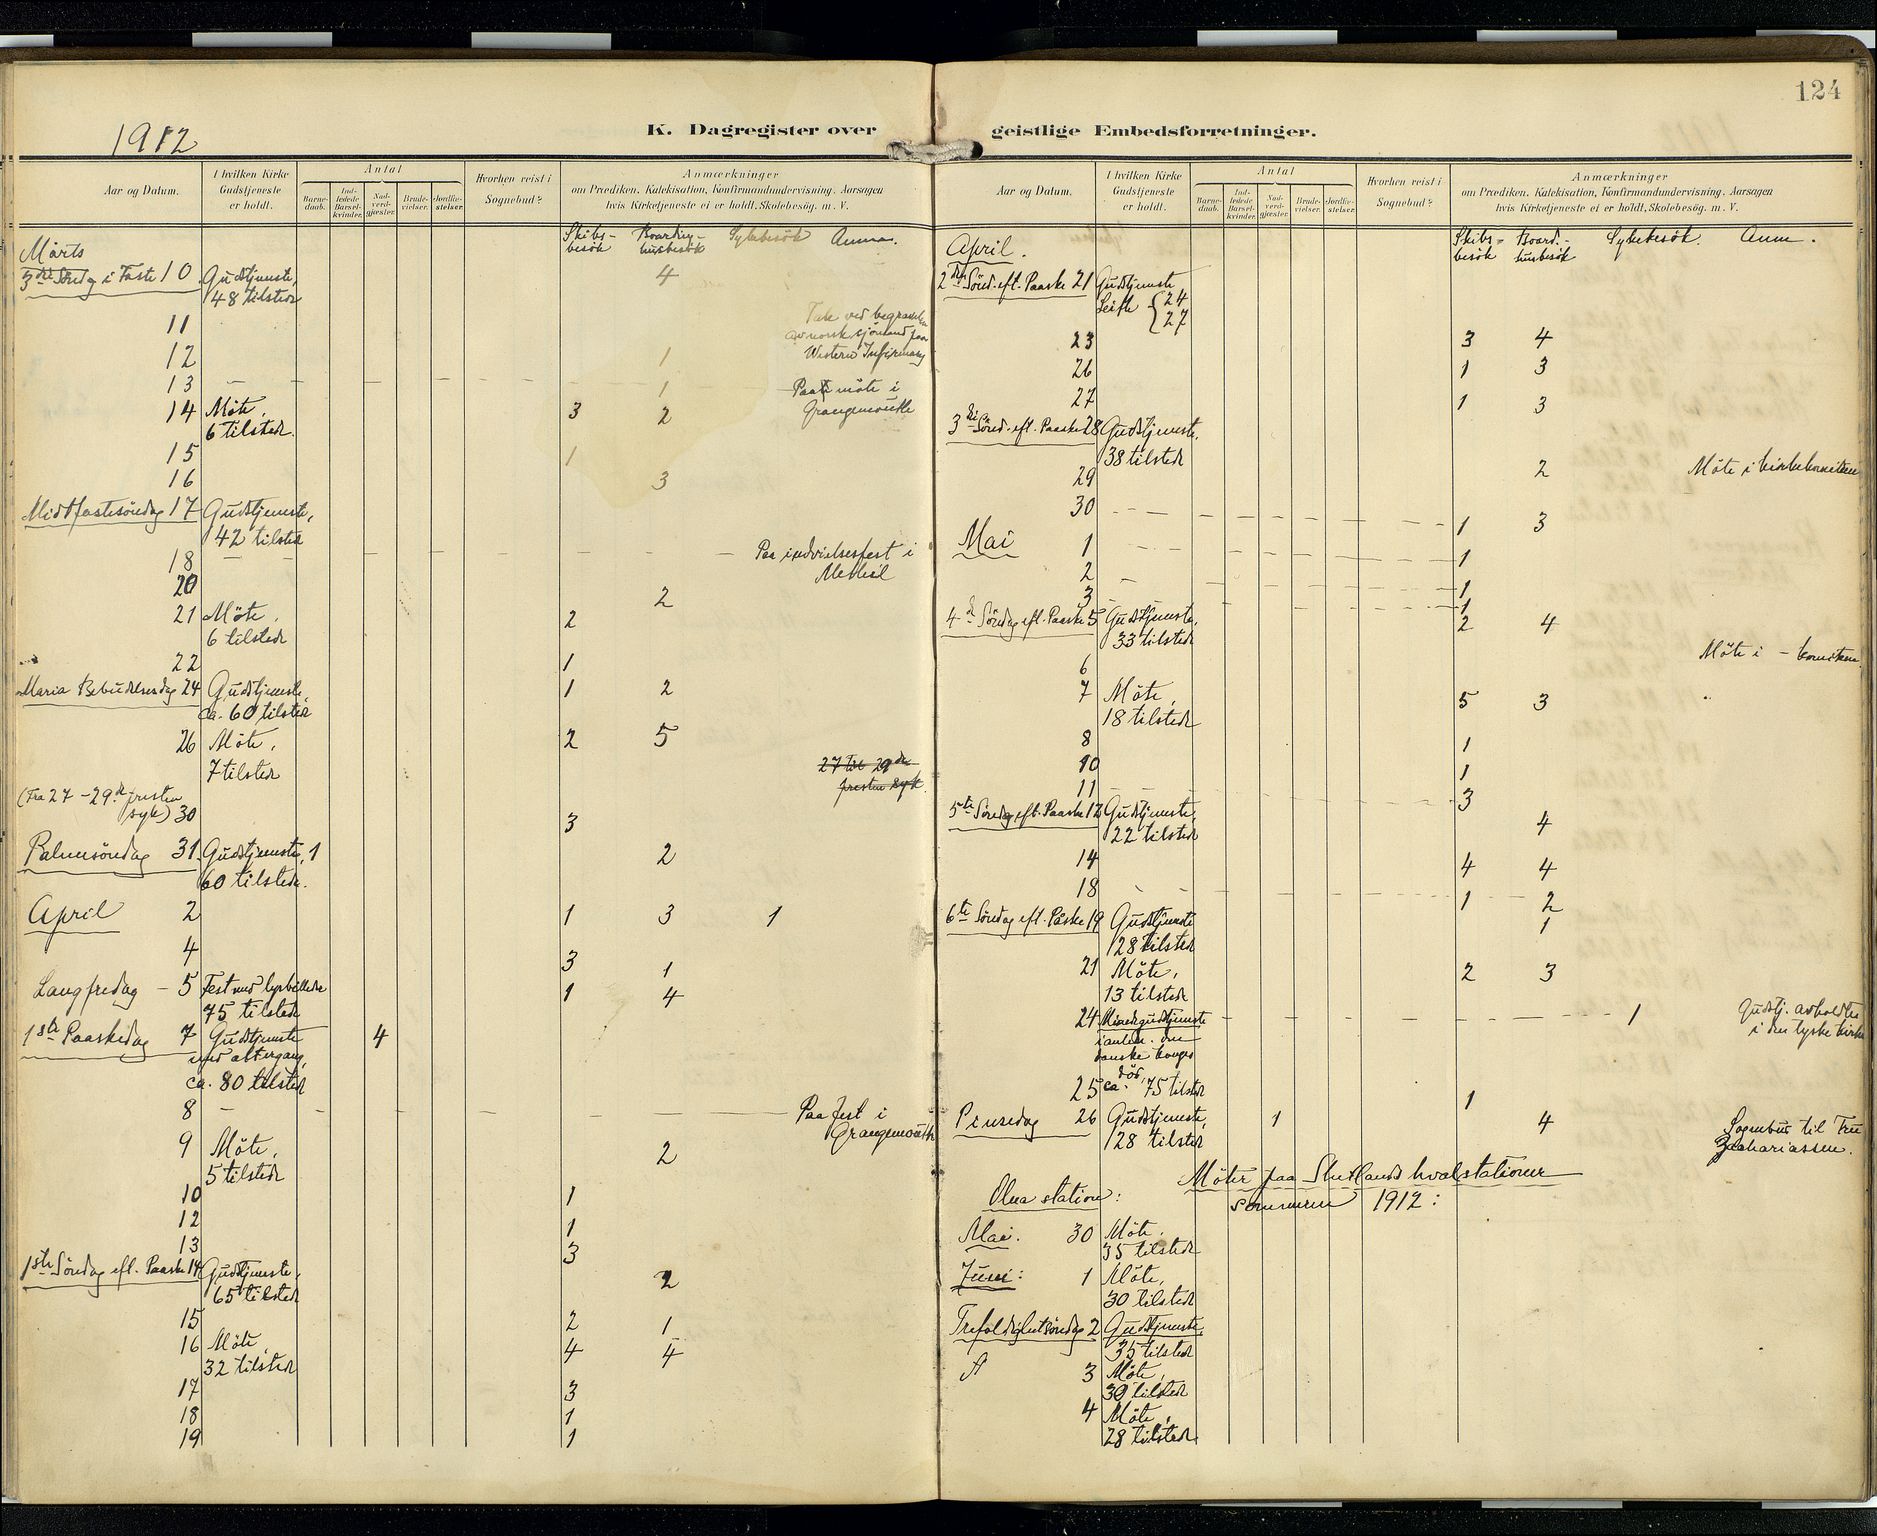 124
1912
K. Dagregister over geistlige Embedsforretninger.
Aar og Datum.
I hvilken Kirke Gudstjeneste er holdt.
Antal
Barnedaab.
Indledede Barselkvinder.
Nadverdgjæster.
Brudevielser.
Jordfæstelser.
Hvorhen reist i Sognebud?
Anmærkninger
om Prædiken, Katekisation, Konfirmandundervisning, Aarsagen
hvis Kirketjeneste ei er holdt, Skolebesøg. m. V.
Skibsbesök Boardinghusbesök Sykebesök Anm.
Marts
3die Söndag i Faste 10 Gudstjeneste, 4
48 tilstede
11 Tale ved begravelse
av norsk sjömand paa
12 1 Western Infirmary
13 – 1 Paa möte i
14 Möte, 3 2 Grangemouth
6 tilstede.
15 1
16 3
Midtfastesöndag 17 Gudstjeneste,
42 tilstede
18 Paa indvielsesfest i
Methil
20 2
21 Möte, 2
6 tilstede
22 1
Maria Bebudelsesdag 24 Gudstjeneste, 1 2
ca. 60 tilstede
26 Möte, 2 5
7 tilstede
27 til 29de
presten syk.
(Fra 27–29de presten
syk) 30 3
Palmesöndag 31 Gudstjeneste, 1 2
60 tilstede.
April 2 1 3 1
4 3 1
Langfredag – 5 Fest med lysbilleder 1 4
75 tilstede
1ste Paaskedag 7 Gudstjeneste 4
med altergang,
ca. 80 tilstede
8 – Paa fest i
Grangemouth
9 Möte, 2
5 tilstede
10 1
12 1
13 3
1ste Söndag eft. Paaske 14 Gudstjeneste, 2
65 tilstede
15 2 1
16 Möte, 4 4
32 tilstede
17 3
18 1
19 1
Aar og Datum.
I hvilken Kirke Gudstjeneste er holdt.
Antal
Barnedaab.
Indledede Barselkvinder.
Nadverdgjæster.
Brudevielser.
Jordfæstelser.
Hvorhen reist i Sognebud?
Anmærkninger
om Prædiken, Katekisation, Konfirmandundervisning, Aarsagen
hvis Kirketjeneste ei er holdt, Skolebesøg. m. V.
Skibsbesök Board.husbesök Sykebesök. Anm.
April.
2den Sönd. eft. Paaske 21 Gudstjeneste
Leith { 24
27
23 3 4
26 1 3
27 1 3
3die Sönd. eft. Paaske 28 Gudstjeneste,
38 tilstede 2 Möte i kirkekomiteen
29
30 1 3
Mai 1 1
2 1
3 1
4de Söndag eft. Paaske 5 Gudstjeneste, 2 4
33 tilstede
6 Möte i – komiteen.
7 Möte, 5 3
18 tilstede
8 1
10 1
11 3
5te Söndag eft. Paaske 12 Gudstjeneste, 4
22 tilstede
14 4 4
18 1 2
6te Söndag eft. Påske 19 Gudstjeneste 1
28 tilstede
21 Möte, 2 3
13 tilstede
24 Mindegudstjeneste 1 Gudstj. avholdtes
i anledn. den i den tyske kirke
danske konges
död,
25 ca. 75 tilstede 1
Pinsedag 26 Gudstjeneste, 1 4 Sognebud til Fru
128 tilstede Zachariassen.
Möter paa Shetlands hvalstationer
sommeren 1912:
Olna station:
Mai. 30 Möte,
35 tilstede
Juni: 1 Möte,
30 tilstede
Trefoldighetsöndag 2 Gudstjeneste,
35 tilstede
3 Möte,
30 tilstede
4 Möte,
28 tilstede